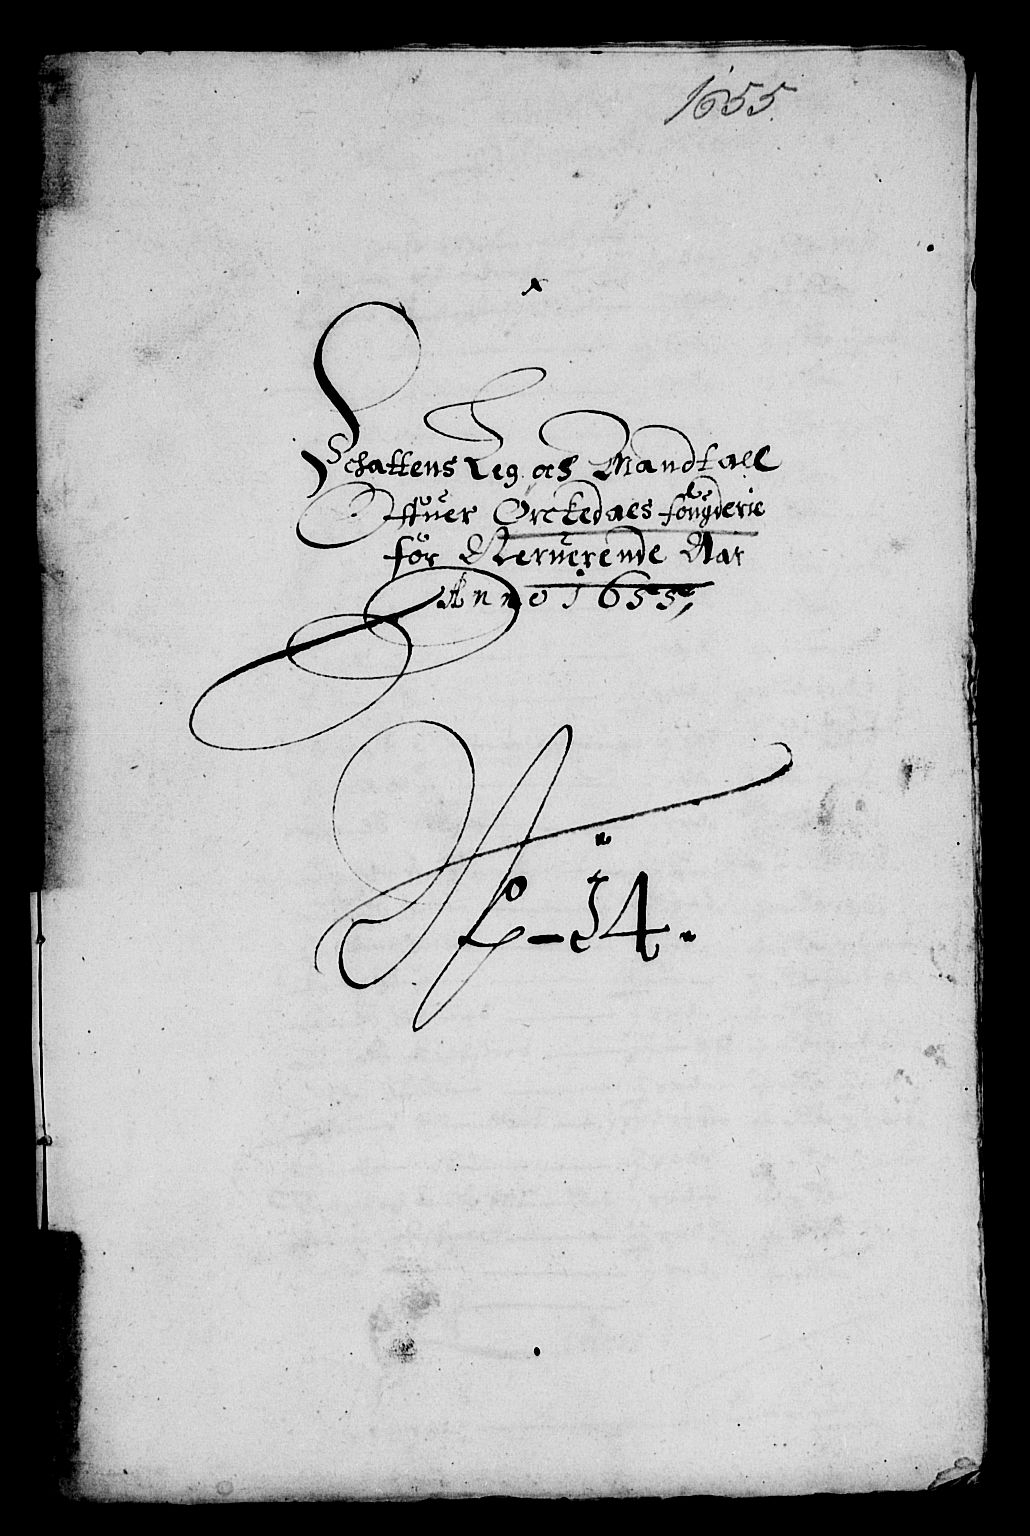 1655
Schattens Leg och Mandtall
Offuer Orckedaels fougderie
for Neruerende Aar
Anno 1655,
No - 14.